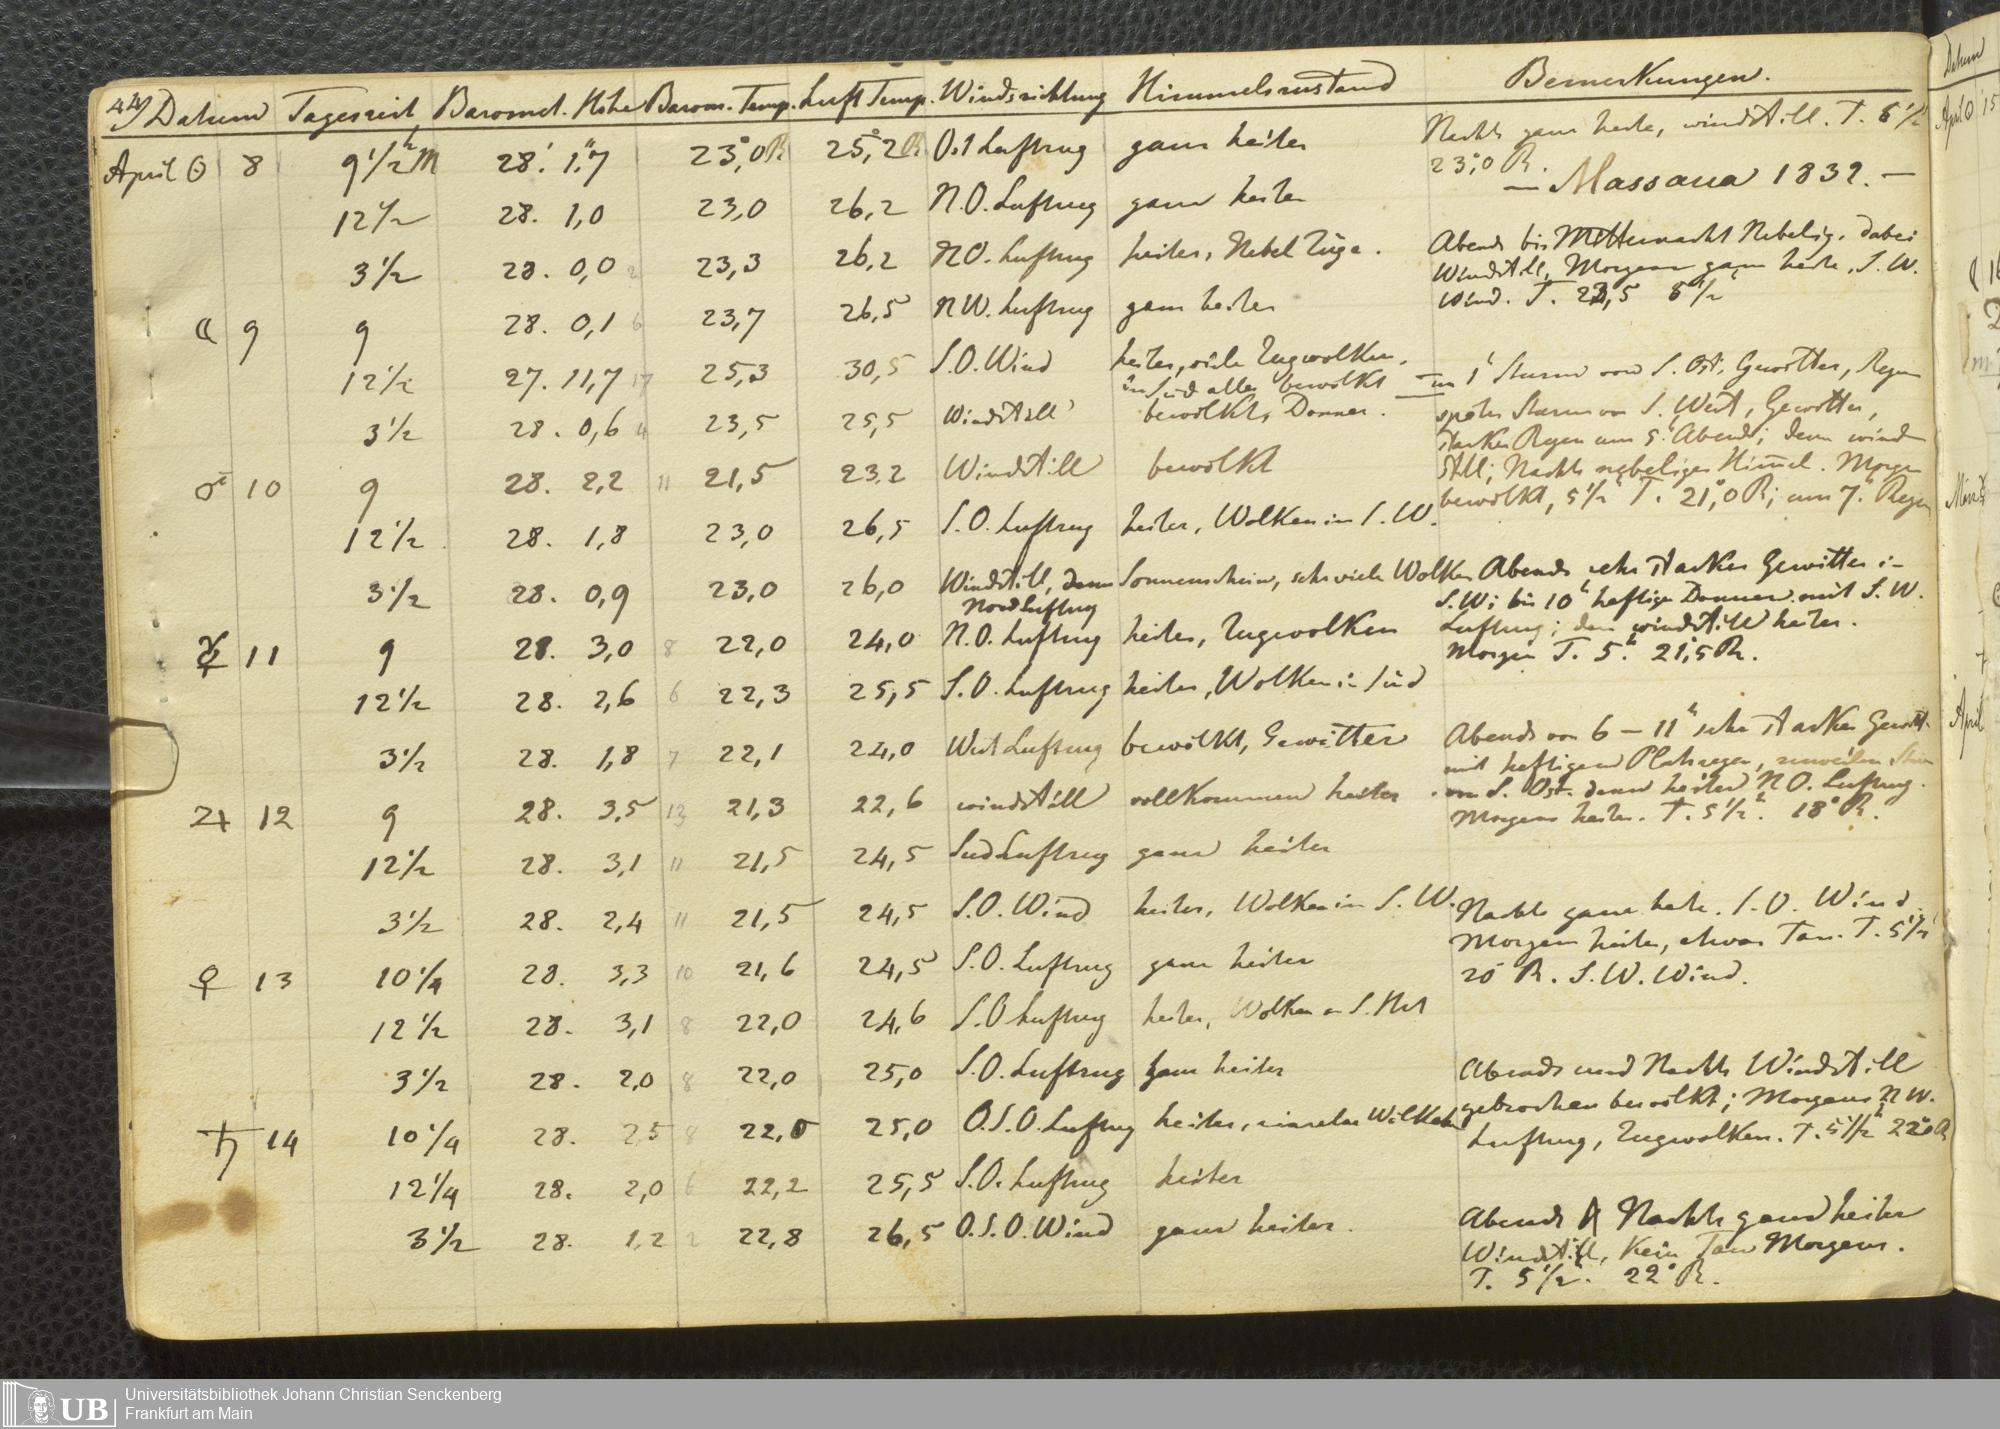 44) Datum Tageszeit Baromet. Höhe Barom. Temp. Luft Temp. Windsrichtung Himmelszustand Bemerkungen.
April ☉ 8 9 1/2 h M 28.' 1,"7 23,°0 R 25,°2 R Ost Luftzug ganz heiter Nachts ganz heiter, windstill. T. 5 1/2
23,°0 R.
— Massaua 1832. —
12 1/2 28. 1,0 23,0 26,2 N.O. Luftzug ganz heiter
3 1/2 28. 0,0 2 23,3 26,2 N.O. Luftzug heiter, Nebel Züge. Abends bis Mitternacht Nebelig, dabei
Windstill, Morgens ganz heiter, S.W.
Wind. T. 23,5 5 1/2
☾ 9 9 28. 0,1 6 23,7 26,5 N W. Luftzug ganz heiter
12 1/2 27. 11,7 17 25,3 30,5 S.O. Wind heiter, viele Zugwolken,
in Süd alles bewölkt um 1 h Sturm von S. Ost, Gewitter, Regen
3 1/2 28. 0,6 4 23,5 25,5 Windstill bewölkt, Donner. später Sturm von S. West, Gewitter,
starker Regen um 5 h Abends; dann wind
still; Nachts nebeliger Him̄el. Morgen
bewölkt, 5 1/2 h T. 21,°0 R; um 7 h Regen
♂ 10 9 28. 2,2 11 21,5 23,2 Windstill bewölkt
12 1/2 28. 1,8 23,0 26,5 S.O. Luftzug heiter, Wolken im S.W.
3 1/2 28. 0,9 23,0 26,0 Windstill, dann Sonnenschein, sehr viele Wolken Abends sehr starkes Gewitter in
Nord Luftzug S.W; bis 10 h heftige Donner mit S.W.
Luftzug; dann windstill heiter.
Morgen T. 5 h 21,°5 R.
☿ 11 9 28. 3,0 8 22,0 24,0 N.O. Luftzug heiter, Zugwolken
12 1/2 28. 2,6 6 22,3 25,5 S.O. Luftzug heiter, Wolken in Süd
3 1/2 28. 1,8 7 22,1 24,0 West Luftzug bewölkt, Gewitter Abends von 6 – 11 h sehr starkes Gewitt.
mit heftigem Platzregen, zuweilen
von S. Ost. dann heiter N O. Luftzug.
Morgens heiter. T. 5 1/2 h. 18° R.
♃ 12 9 28. 3,5 13 21,3 22,6 windstill vollkommen heiter
12 1/2 28. 3,1 11 21,5 24,5 Süd Luftzug ganz heiter
3 1/2 28. 2,4 11 21,5 24,5 S.O. Wind heiter, Wolken im S. W. Nachts ganz heiter. S.O. Wind.
Morgens heiter, etwas Tau. T. 5 1/2
20° R. S.W. Wind.
♀ 13 10 1/4 28. 3,3 10 21,6 24,5 S.O. Luftzug ganz heiter
12 1/2 28. 3,1 8 22,0 24,6 S.O Luftzug heiter, Wolken
3 1/2 28. 2,0 8 22,0 25,0 S.O. Luftzug ganz heiter Abends und Nachts Windstill
gebrochen bewölkt; Morgens N W.
Luftzug, Zugwolken. T. 5 1/2 h 22° R
♄ 14 10 1/4 28. 2,5 8 22,0 25,0 O.S.O. Luftzug heiter, einzelne Wölkchen
12 1/4 28. 2,0 6 22,2 25,5 S.O. Luftzug heiter
3 1/2 28. 1,2 2 22,8 26,5 O.S.O. Wind ganz heiter. Abends Nachts ganz heiter
Windstill, Kein Tau Morgens.
T. 5 1/2 h. 22° R.
Datum
April ☉ 15
April
UB Universitätsbibliothek Johann Christian Senckenberg
Frankfurt am Main